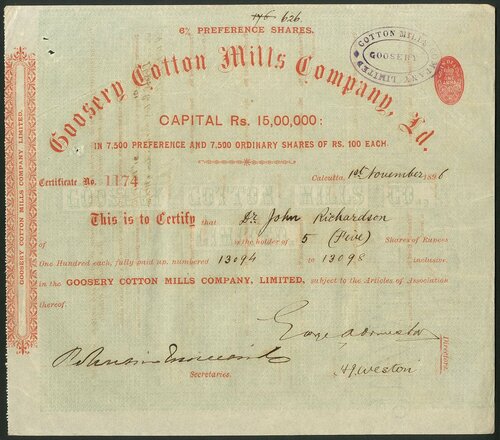 176 626
6% PREFERENCE SHARES.
Goosery Cotton Mills Company, Ld.
COTTON MILLS COMPANY LIMITED
GOOSERY
CAPITAL Rs. 15,00,000:
IN 7,500 PREFERENCE AND 7,500 ORDINARY SHARES OF RS. 100 EACH.
Certificate No. 1174
Calcutta, 1st November 1896
This is to Certify that Dr John Richardson
of is the holder of 5 (Five) Shares of Rupees
One Hundred each, fully paid up, numbered 13094 to 13098 inclusive,
in the GOOSERY COTTON MILLS COMPANY, LIMITED, subject to the Articles of Association
thereof.
Directors.
H J Weston
Secretaries.
GOOSERY COTTON MILLS COMPANY LIMITED.